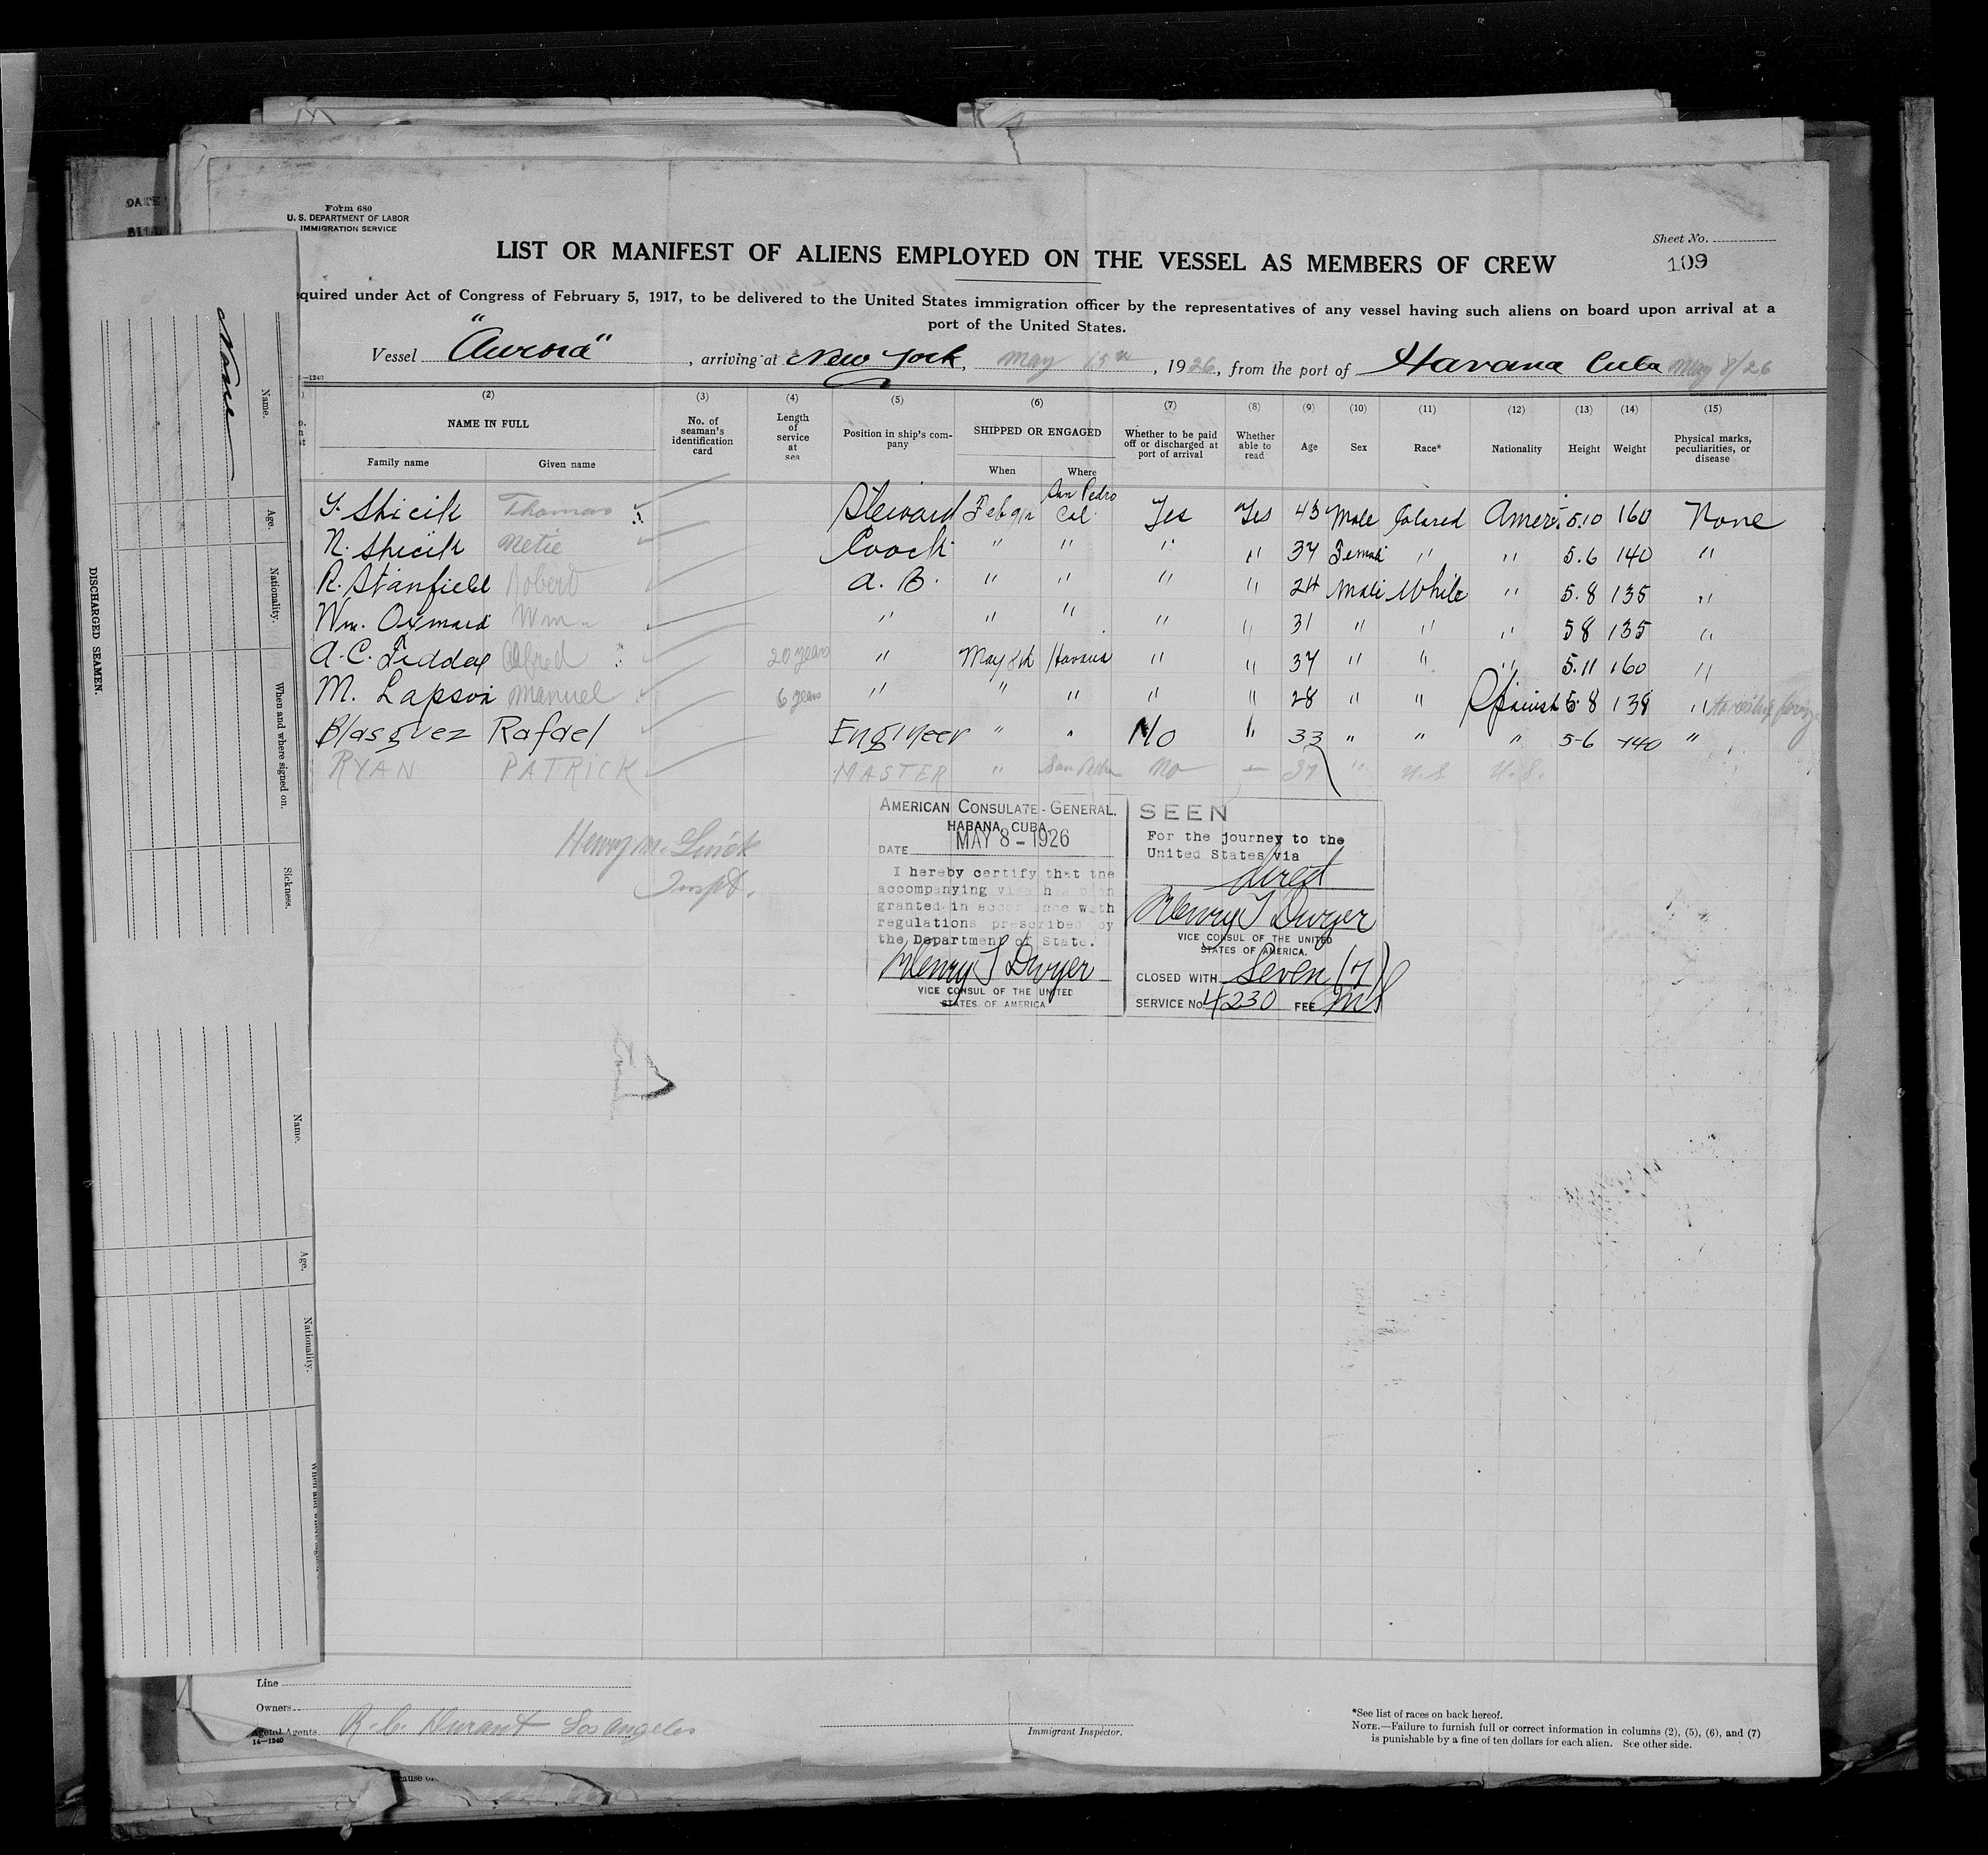 DATE
Form 680
U. S. DEPARTMENT OF LABOR
IMMIGRATION SERVICE
Sheet No.
109
LIST OR MANIFEST OF ALIENS EMPLOYED ON THE VESSEL AS MEMBERS OF CREW
quired under Act of Congress of February 5, 1917, to be delivered to the United States immigration officer by the representatives of any vessel having such aliens on board upon arrival at a
port of the United States.
Vessel "Aurora", arriving at New York, May 15th, 1926, from the port of Havana Cuba May 8/26
(2) (3) (4) (5) (6) (7) (8) (9) (10) (11) (12) (13) (14) (15)
NAME IN FULL
Family name Given name
No. of seaman's identification card
Length of service at sea
Position in ship's company
SHIPPED OR ENGAGED
When Where
Whether to be paid off or discharged at port of arrival
Whether able to read
Age Sex Race* Nationality Height Weight
Physical marks, peculiarities, or disease
Thomas Steward Feb 9th San Pedro Cal. Yes Yes 43 Male Colored Amer. 5.10 160 None
Netie Coock " " " " 37 Female " " 5.6 140 "
R. Stanfield Robert A. B. " " " " 24 Male White " 5.8 135 "
Wm. Wm. " " " " " 31 " " " 5 8 135 "
A. C. Alfred 20 years " May 8th Havana " " 37 " " " 5.11 160 "
M. Manuel 6 years " " " " " 28 " " Spanish 5.8 138 "
Blasqvez Rafael Engineer " " No " 33 " " " 5-6 140 "
RYAN PATRICK MASTER " San Pedro No — 37 " U.S. U.S.
Henry M.
Inspt.
AMERICAN CONSULATE-GENERAL.
HABANA, CUBA.
DATE MAY 8-1926
I hereby certify that the
accompanying visa has been
granted in accordance with
regulations prescribed by
the Department of State.
Henry T Dwyer
VICE CONSUL OF THE UNITED
STATES OF AMERICA
SEEN
For the journey to the
United States via
direct
Henry T Dwyer
VICE CONSUL OF THE UNITED
STATES OF AMERICA.
CLOSED WITH Seven (7)
SERVICE No. 4230 FEE
Line
Owners
Agents R. C. Durant Los Angeles
14—1240
Immigrant Inspector.
*See list of races on back hereof.
NOTE.—Failure to furnish full or correct information in columns (2), (5), (6), and (7)
is punishable by a fine of ten dollars for each alien. See other side.
DISCHARGED SEAMEN.
None
Name.
Age.
Nationality.
When and where signed on.
Sickness.
Name.
Age.
Nationality.